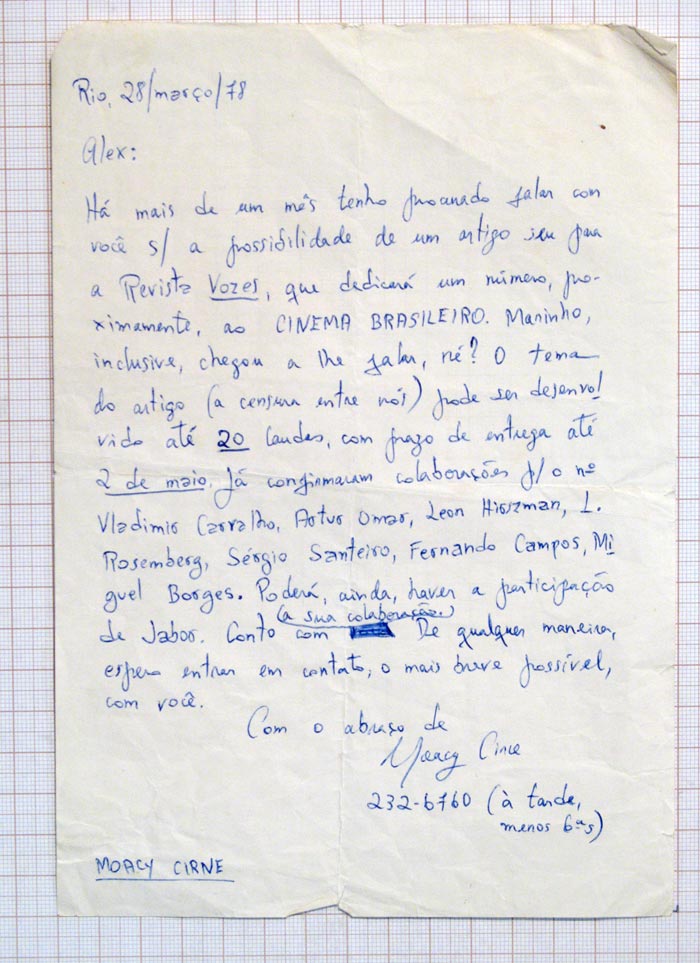 Rio, 28/março/78
Alex:
Há mais de um mês tenho procurado falar com
você s/ a possibilidade de um artigo seu para
a Revista Vozes, que dedicará um número, pro-
ximamente, ao CINEMA BRASILEIRO. Maninho,
inclusive, chegou a lhe falar, né? O tema
do artigo (a censura entre nós) pode ser desenvol
vido até 20 laudas, com prazo de entrega até
2 de maio. Já confirmaram colaborações p/ o nº
Vladimir Carvalho, Artur Omar, Leon Hirszman, L.
Rosemberg, Sérgio Santeiro, Fernando Campos, Mi
guel Borges. Poderá, ainda, haver a participação
(a sua colaboração.)
de Jabor. Conto com De qualquer maneira,
espero entrar em contato, o mais breve possível,
com você.
Com o abraço de
Moacy Cirne
232-6760 (à tarde,
menos 6ªs)
MOACY CIRNE